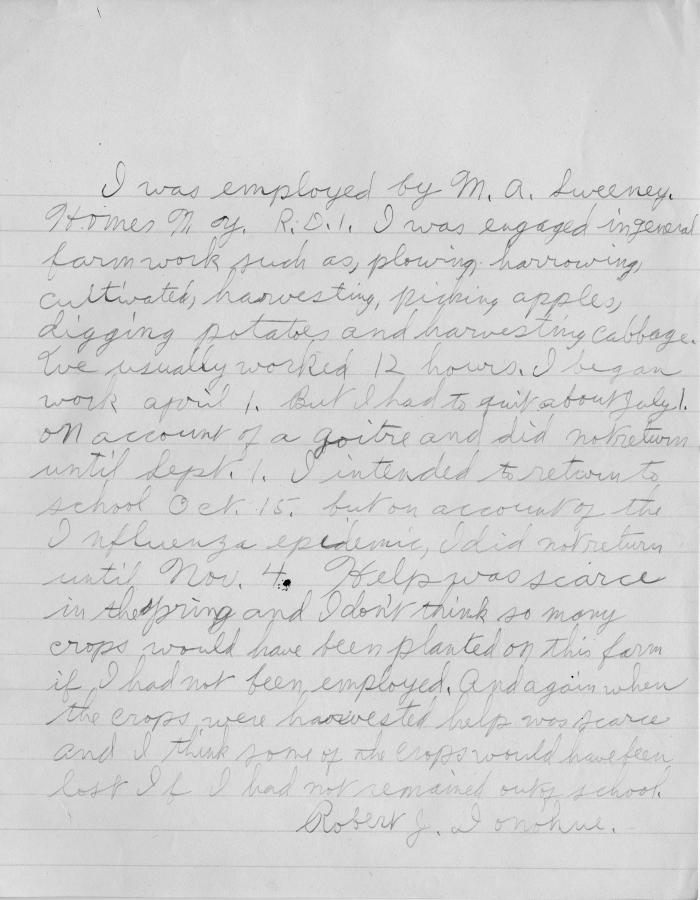 I was employed by M. A. Sweeney.
Homes N. Y. R. D. 1. I was engaged in general
farm work such as, plowing, harrowing,
cultivated, harvesting, picking apples,
digging potatoes and harvesting cabbage.
We usually worked 12 hours. I began
work april 1. But I had to quit about July 1.
on account of a goitre and did not return
until Sept. 1. I intended to return to
school Oct. 15. but on account of the
Influenza epidemic, I did not return
until Nov. 4. Help was scarce
in the spring and I don't think so many
crops would have been planted on this farm
if I had not been employed. And again when
the crops were harvested help was scarce
and I think some of the crops would have been
lost If I had not remained out of school.
Robert J. Donohue.